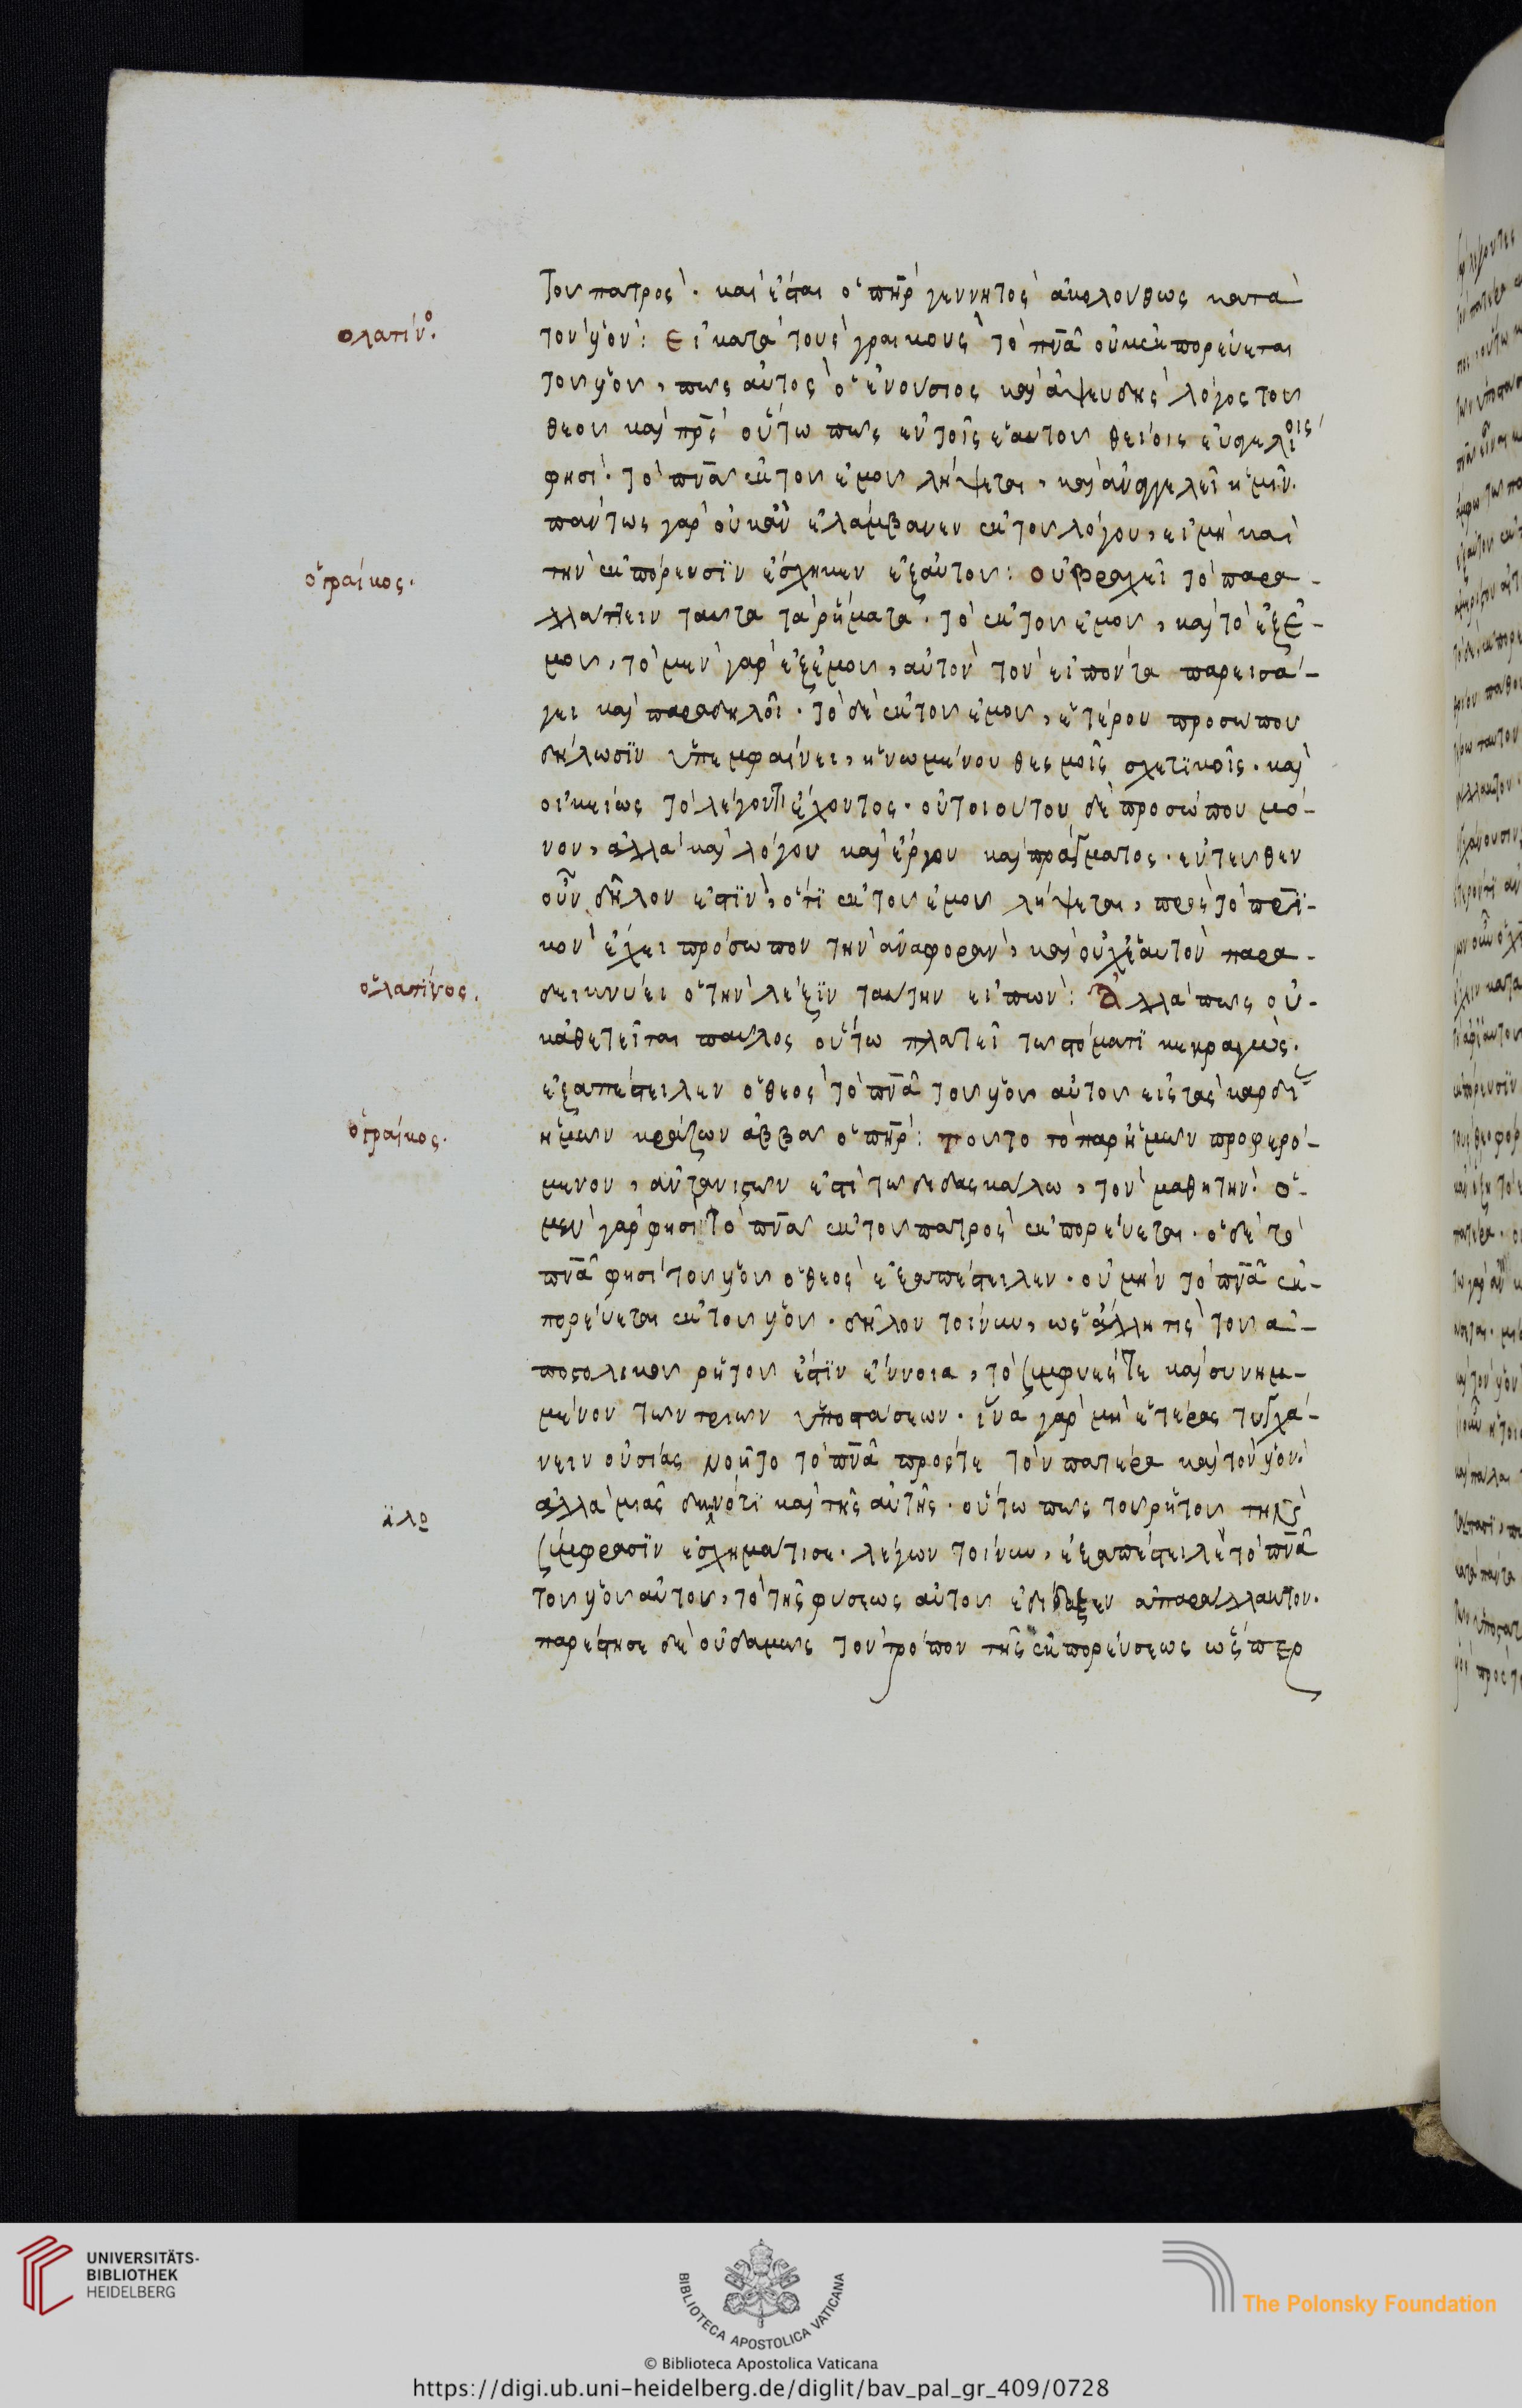 τοῦ πατρὸς. καὶ ἔσται ὁ πη̅ρ γεννητὸς ἀκολούθως κατὰ
ὁ λατίν%ο.
τὸν υἱὸν: Εἰ κατὰ τοὺς γραικοὺς τὸ πν̅α οὐκ ἐκπορεύεται
τοῦ υἱοῦ, πῶς αὐτὸς ὁ ἐνούσιος καὶ ἀψευδὴς λόγος τοῦ
θεοῦ καὶ πρ̅ς οὕτω πως ἐν τοῖς ἑαυτοῦ θείοις εὐαγγελίοις
φησί. τὸ πν̅α ἐκ τοῦ ἐμοῦ λήψεται, καὶ ἀναγγελεῖ ἡμῖν.
πάντως γὰρ οὐκ ἂν ἐλάμβανεν ἐκ τοῦ λόγου, εἰ μὴ καὶ
ὁ γραίκος.
τὴν ἐκπόρευσϊν ἔσχηκεν ἐξ αὐτοῦ: Οὐ βραχεῖ τὸ παρα-
λλάττειν ταῦτα τὰ ῥήματα. τὸ ἐκ τοῦ ἐμοῦ, καὶ τὸ ἐξ ἐ-
μοῦ, τὸ μὲν γὰρ ἐξ ἐμοῦ, αὐτὸν τὸν εἰπόντα παρεισά-
γει καὶ παραδηλοῖ. τὸ δὲ ἐκ τοῦ ἐμοῦ, ἑτέρου προσώπου
δήλωσϊν ὑπεμφαίνει, ἡνωμένου θεσμοῖς σχετϊκοῖς. καὶ
οἰκείως τὸ λέγοντι ἔχοντος. οὐ τοιούτου δὲ προσώπου μό-
νον, ἀλλὰ καὶ λόγου καὶ ἔργου καὶ πράγματος. ἐντεῦθεν
οὖν δῆλον ἐστϊν, ὅτϊ ἐκ τοῦ ἐμοῦ λήψεται, πρὸς τὸ πρ̅ϊ-
κὸν ἔχει πρόσωπον τὴν ἀναφορὰν, καὶ οὐχ ἑαυτὸν παρα-
ὁ λατίνος.
δεικνύει ὁ τὴν λέξϊν ταύτην εἰπών: Ἀλλὰ πῶς οὐ-
κ ἀθετεῖται παῦλος οὕτω πλατεῖ τῷ στόματϊ κεκραγὼς.
ἐξαπέστειλεν ὁ θεὸς τὸ πν̅α τοῦ υἱοῦ αὐτοῦ εἰς τὰς καρδί
ὁ γραίκος.
ἡμῶν κράζων ἀββᾶ ὁ πη̅ρ: Τοῦτο τὸ παρ ἡμῶν προφερό-
μενον, ἀνταντιςων ἐστὶ τῷ διδασκάλω, τὸν μαθητήν. ὁ
μὲν γάρ φησὶ τὸ πν̅α ἐκ τοῦ πατρὸς ἐκπορεύεται. ὁ δὲ τὸ
πν̅α φησὶ τοῦ υἱοῦ ὁ θεὸς ἐξαπέστειλεν. οὐ μὴν τὸ πν̅α ἐκ-
πορεύεται ἐκ τοῦ υἱοῦ. δῆλον τοίνυν, ὡς ἄλλη τίς τοῦ ἀ-
ποστολικοῦ ῥητοῦ ἐστϊν ἔννοια, τὸ συμφυές τε καὶ συνημ-
μένον τῶν τριῶν ὑποστάσεων. ἵνα γὰρ μὴ ἑτέρας τυγχά-
νειν οὐσίας νοῆτο τὸ πν̅α πρός τε τὸν πατέρα καὶ τὸν υἱόν.
ἄλο
ἀλλὰ μιᾶς δηλονότϊ καὶ τῆς αὐτῆς. οὕτω πως τοῦ ῥητοῦ τὴν
συμφρασϊν ἐσχημάτισε. λέγων τοίνυν, ἐξαπέστειλε τὸ πν̅α
τοῦ υἱοῦ αὐτοῦ, τὸ τῆς φύσεως αὐτοῦ ἐδίδαξεν ἀπαράλλακτον.
παρέστησε δὲ οὐδαμῶς τὸν τρόπον τῆς ἐκπορεύσεως ὥσπερ
UNIVERSITÄTS-
BIBLIOTHEK
HEIDELBERG
BIBLIOTECA APOSTOLICA VATICANA
The Polonsky Foundation
© Biblioteca Apostolica Vaticana
https://digi.ub.uni-heidelberg.de/diglit/bav_pal_gr_409/0728